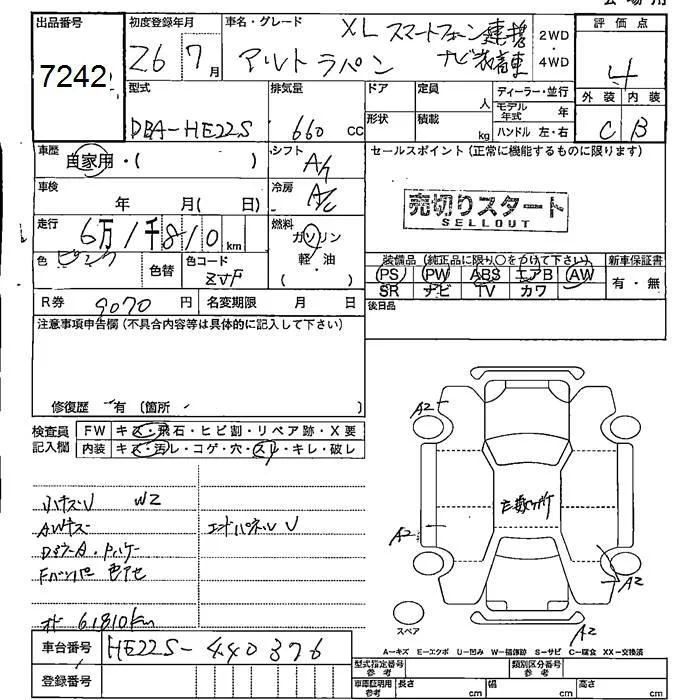 出品番号
7242
初度登録年月
26 7月
車名・グレード
XL スマートフォン連携
アルトラパン ナビ装着車
2WD
4WD
評価点
4
外装 内装
C B
型式
DBA-HE22S
排気量
660 cc
ドア
形状
定員 人
積載 kg
ディーラー・並行
モデル年式 年
ハンドル 左・右
車歴
自家用・( )
シフト
A/
セールスポイント(正常に機能するものに限ります)
売切りスタート
SELLOUT
車検
年 月( 日)
冷房
A/C
走行
6万1千810km
燃料
ガソリン
軽・油
( )
色 ピンク
色替
色コード
ZVF
装備品(純正品に限り○をつけて下さい)
(PS) (PW) ABS エアB (AW)
SR ナビ TV カワ
新車保証書
有・無
R券 9070 円
名変期限 月 日
後日品
注意事項申告欄(不具合内容等は具体的に記入して下さい)
修復歴 有(箇所 )
検査員
記入欄
FW キズ・飛石・ヒビ割・リペア跡・X要
内装 キズ・汚レ・コゲ・穴・スレ・キレ・破レ
小キズU W2
AWキズ
エンドパネルU
Fバンパー 色アセ
61810km
A2
A2
A2
A2
スペア
A-キズ E-エクボ U-凹み W-補修跡 S-サビ C-腐食 XX-交換済
車台番号
HE22S-440376
登録番号
型式指定番号
参考
類別区分番号
参考
車庫証明用
参考
長さ cm
幅 cm
高さ cm